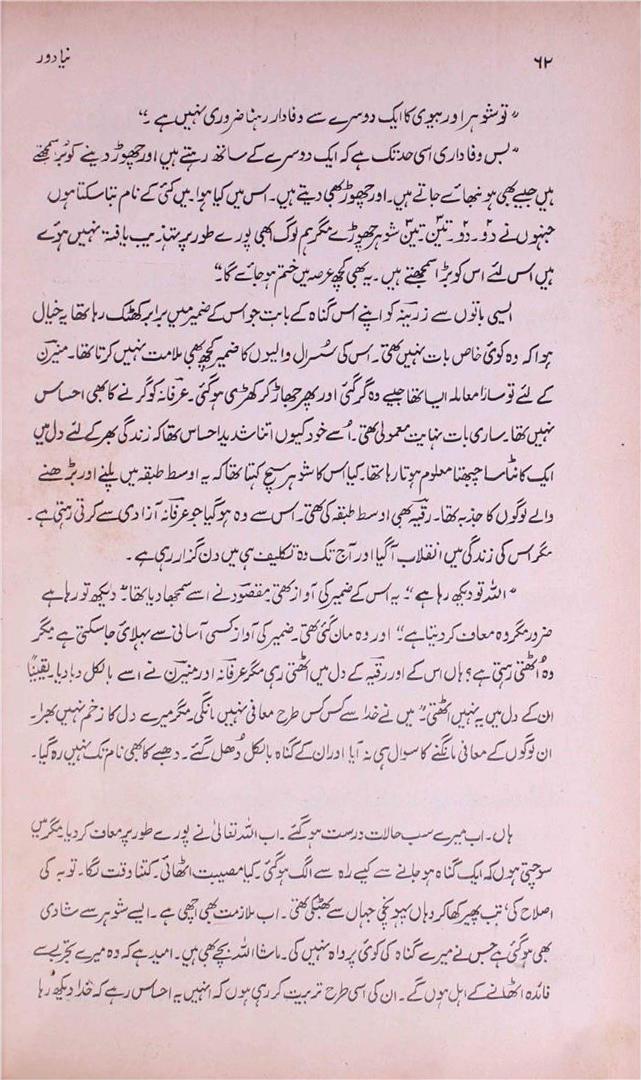 ۶۲ نیا دور
" تو شوہر اور بیوی کا ایک دوسرے سے وفادار رہنا ضروری نہیں ہے ۔"
" بس وفاداری اسی حد تک ہے کہ ایک دوسرے کے ساتھ رہتے ہیں اور چھوڑ دینے کو بُرا سمجھتے
ہیں جیسے بھی ہو نبھائے جاتے ہیں۔ اور چھوڑ بھی دیتے ہیں۔ اس میں کیا ہوا۔ میں کئی کے نام بتا سکتا ہوں
جنہوں نے دو۔ دو۔ تین تین شوہر چھوڑے مگر ہم لوگ ابھی پورے طور پر تہذیب یافتہ نہیں ہوئے
ہیں اس لئے اس کو بڑا سمجھتے ہیں ۔ یہ بھی کچھ عرصہ میں ختم ہو جائے گا۔"
ایسی باتوں سے زرینہ کو اپنے اس گناہ کے بابت جو اس کے ضمیر میں برابر کھٹک رہا تھا یہ خیال
ہوا کہ وہ کوئی خاص بات نہیں تھی ۔ اس کی سُسرال والیوں کا ضمیر کچھ بھی ملامت نہیں کرتا تھا۔ منیرن
کے لئے تو سارا معاملہ ایسا تھا جیسے وہ گر گئی اور پھر جھاڑ کر کھڑی ہو گئی ۔ عرفانہ کو گرنے کا بھی احساس
نہیں تھا۔ ساری بات نہایت معمولی تھی۔ اُسے خود کیوں اتنا شدید احساس تھا کہ زندگی بھر کے لئے دل میں
ایک کانٹا سا چبھتا معلوم ہوتا رہا تھا۔ کیا اس کا شوہر سچ کہتا تھا کہ یہ اوسط طبقہ میں پلنے اور بڑھنے
والے لوگوں کا جذبہ تھا۔ رقیہ بھی اوسط طبقہ کی تھی۔ اس سے وہ ہو گیا جو عرفانہ آزادی سے کرتی رہتی ہے ۔
مگر اس کی زندگی میں انقلاب آ گیا اور آج تک وہ تکلیف ہی میں دن گزار رہی ہے ۔
" اللہ تو دیکھ رہا ہے " یہ اس کے ضمیر کی آواز تھی مقصود نے اسے سمجھا دیا تھا " دیکھ تو رہا ہے
ضرور مگر وہ معاف کر دیتا ہے " اور وہ مان گئی تھی۔ ضمیر کی آواز کسی آسانی سے بہلائی جا سکتی ہے مگر
وہ اُٹھتی رہتی ہے ؟ ہاں اس کے اور رقیہ کے دل میں اٹھتی رہی مگر عرفانہ اور منیرن نے اسے بالکل دبا دیا۔ یقیناً
ان کے دل میں یہ نہیں اٹھتی " میں نے خدا سے کس کس طرح معافی نہیں مانگی۔ مگر میرے دل کا زخم نہیں بھرا۔
ان لوگوں کے معافی مانگنے کا سوال ہی نہ آیا اور ان کے گناہ بالکل دُھل گئے ۔ دھبے کا بھی نام تک نہیں رہ گیا۔
ہاں ۔ اب میرے سب حالات درست ہو گئے ۔ اب اللہ تعالیٰ نے پورے طور پر معاف کر دیا۔ مگر میں
سوچتی ہوں کہ ایک گناہ ہو جانے سے کیسے راہ سے الگ ہو گئی ۔ کیا مصیبت اٹھائی ۔ کتنا وقت لگا۔ توبہ کی
اصلاح کی، تب پھر گھما کر وہاں پہونچی جہاں سے بھٹکی تھی ۔ اب ملازمت بھی اچھی ہے ۔ ایسے شوہر سے شادی
بھی ہو گئی ہے جس نے میرے گناہ کی کوئی پرواہ نہیں کی۔ ماشا اللہ بچے بھی ہیں۔ امید ہے کہ وہ میرے تجربے سے
فائدہ اٹھانے کے اہل ہوں گے ۔ ان کی اسی طرح تربیت کر رہی ہوں کہ انہیں یہ احساس رہے کہ خدا دیکھ رہا